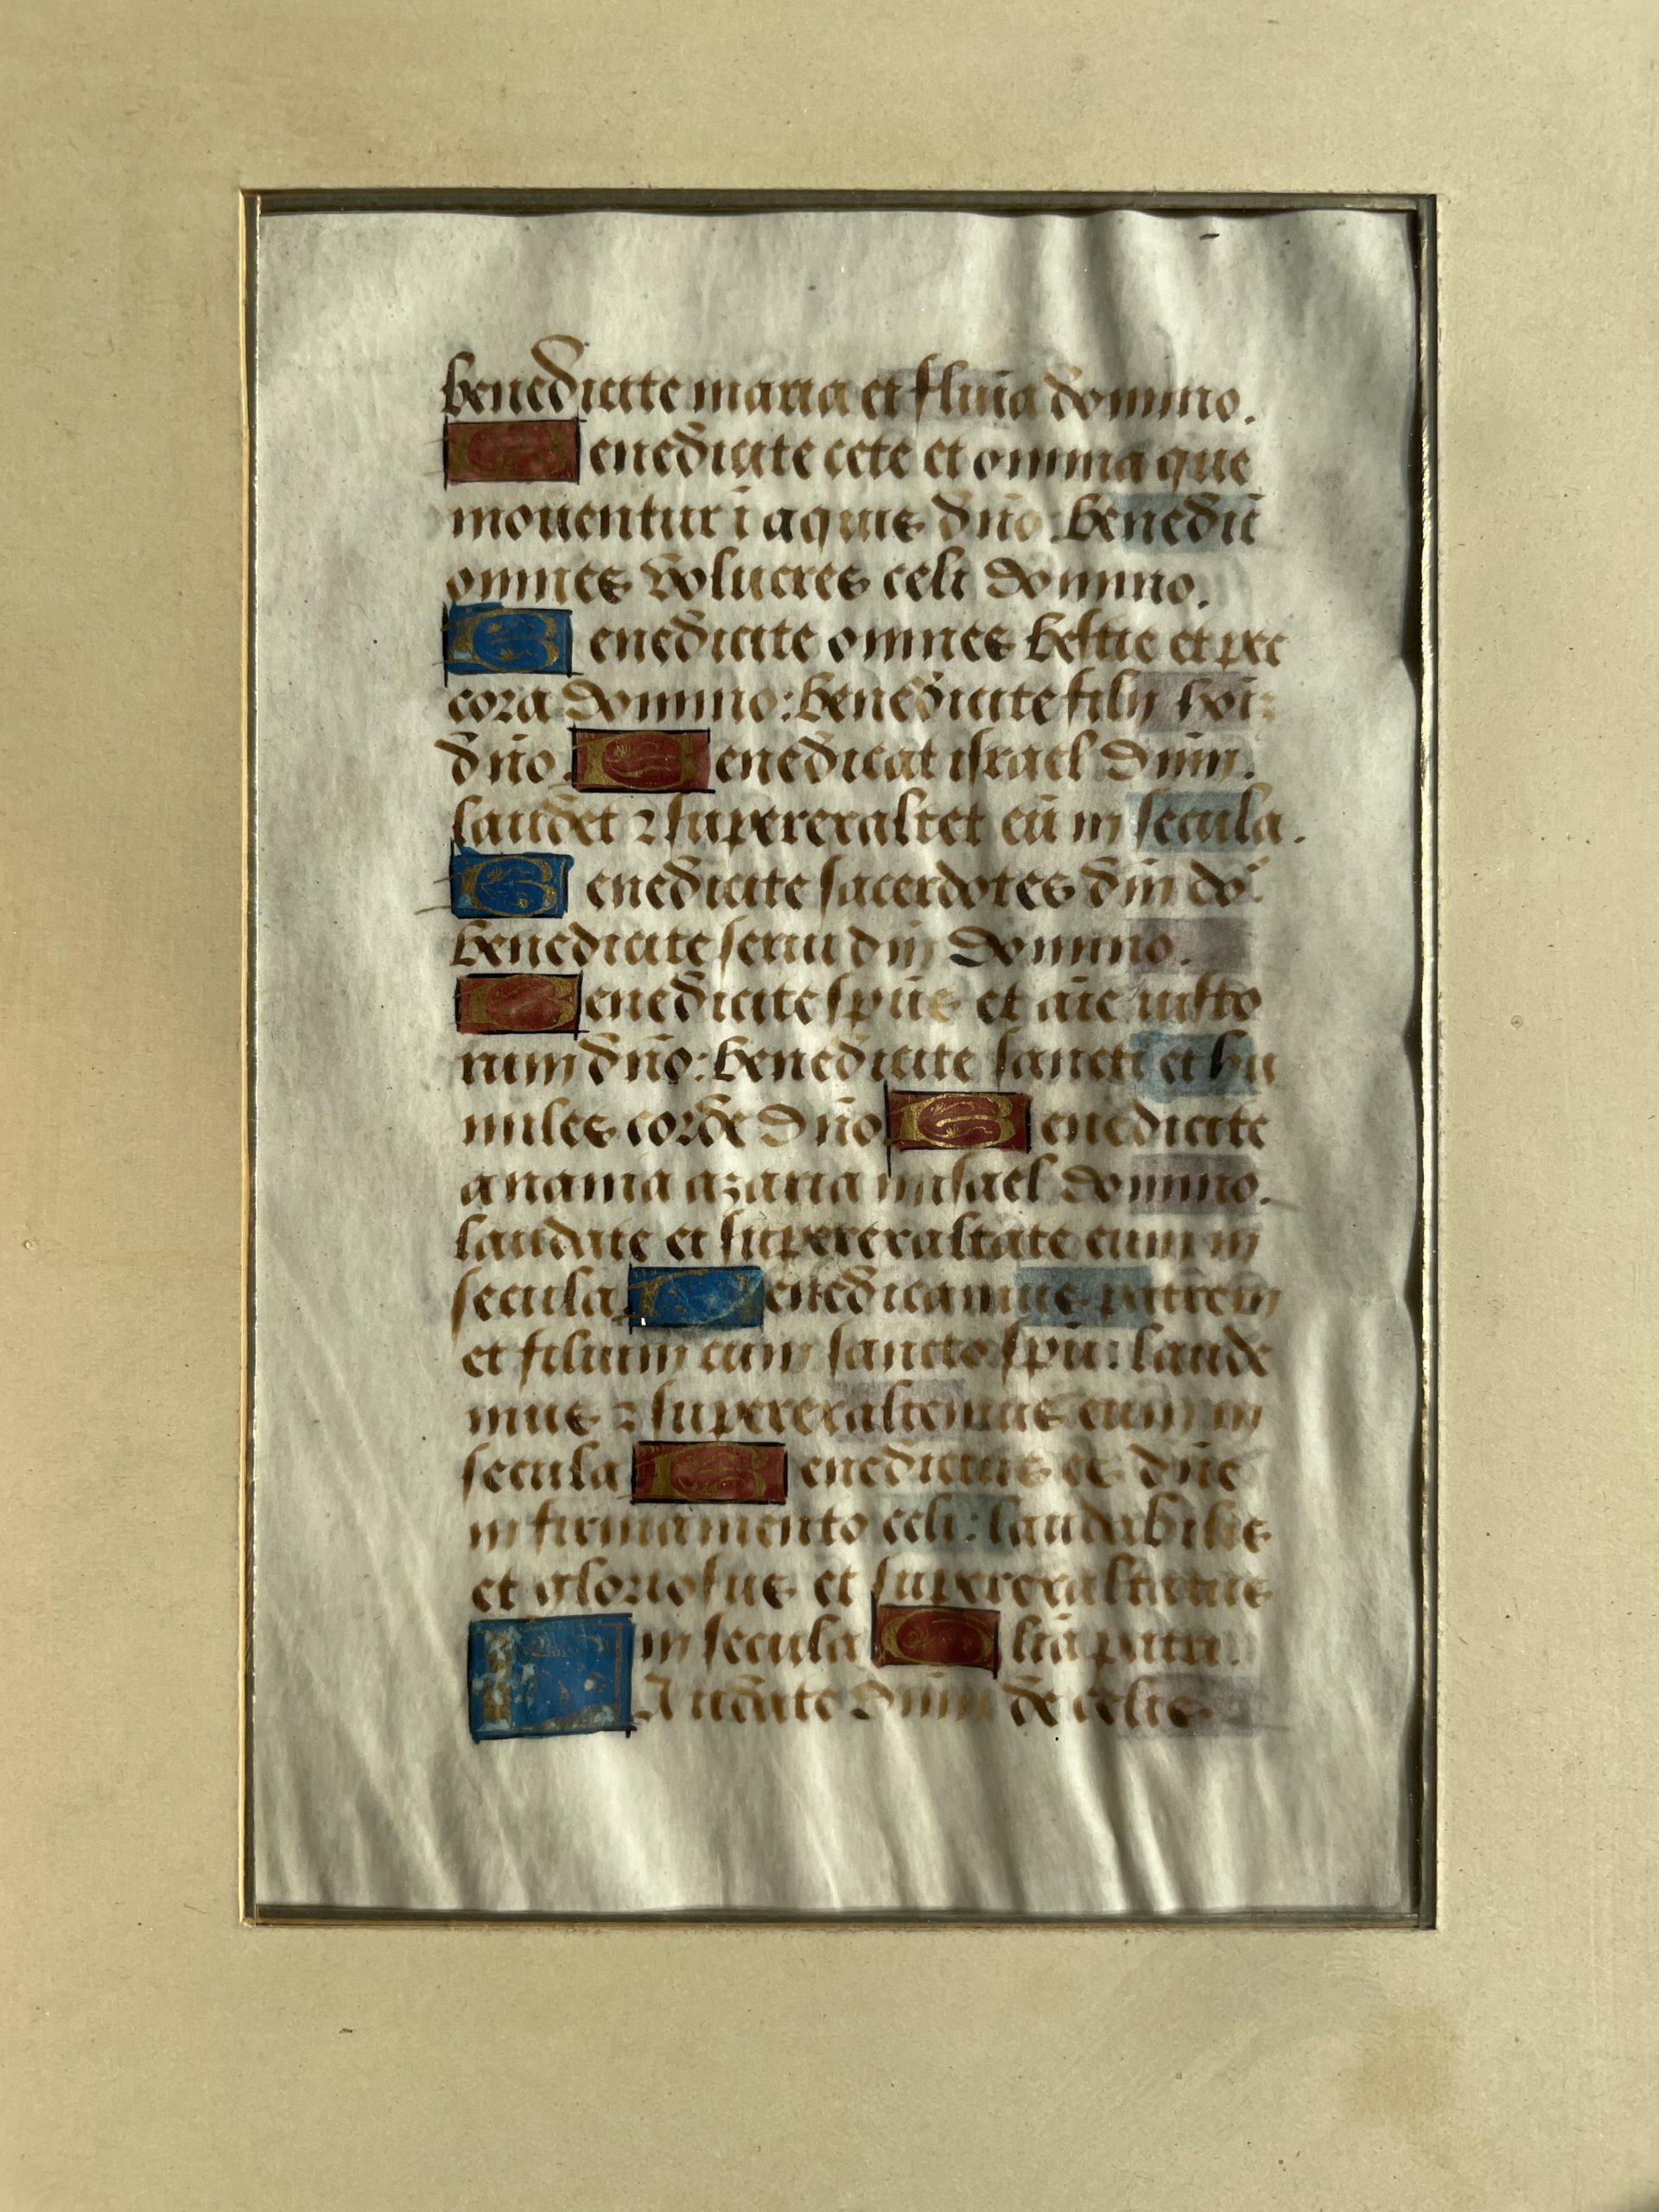 benedicite maria et fluīa domino.
Benedicite cete et omnia que
mouentur ī aquis dn̄o: benedic̄
omnes volucres celi domino.
Benedicite omnes bestie et pec
cora domino: benedicite filij hoīz
dn̄o. Benedicat israel dn̄m.
laudet ⁊ superexaltet eū in secula.
Benedicite sacerdotes dn̄i do.
benedicite serui dn̄i domino.
Benedicite sp̄us et aīe iusto
rum dn̄o: benedicite sancti et hu
miles corde dn̄o Benedicite
anania azaria misael domino.
laudate et superexaltate eum in
secula. Benedicamus patrem
et filium cum sancto sp̄u: laude
mus ⁊ superexaltemus eum in
secula Benedictus es dn̄e
in firmamento celi: laudabilis
et gloriosus et superexaltatus
in secula Gl̄ia patri.
LAudate dn̄m de celis